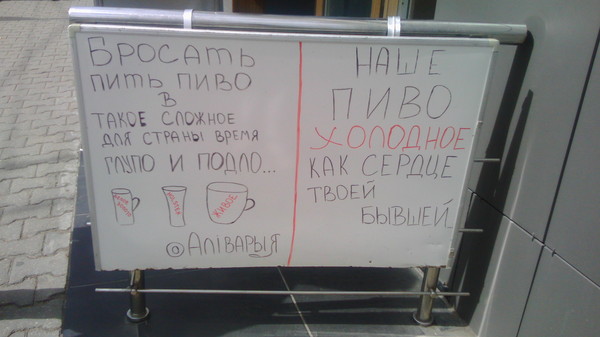 БРОСАТЬ
ПИТЬ ПИВО
В
ТАКОЕ СЛОЖНОЕ
ДЛЯ СТРАНЫ ВРЕМЯ
ГЛУПО И ПОДЛО...
ЖИВОЕ
@ АЛIВАРЫЯ
НАШЕ
ПИВО
ХОЛОДНОЕ
КАК СЕРДЦЕ
ТВОЕЙ
БЫВШЕЙ